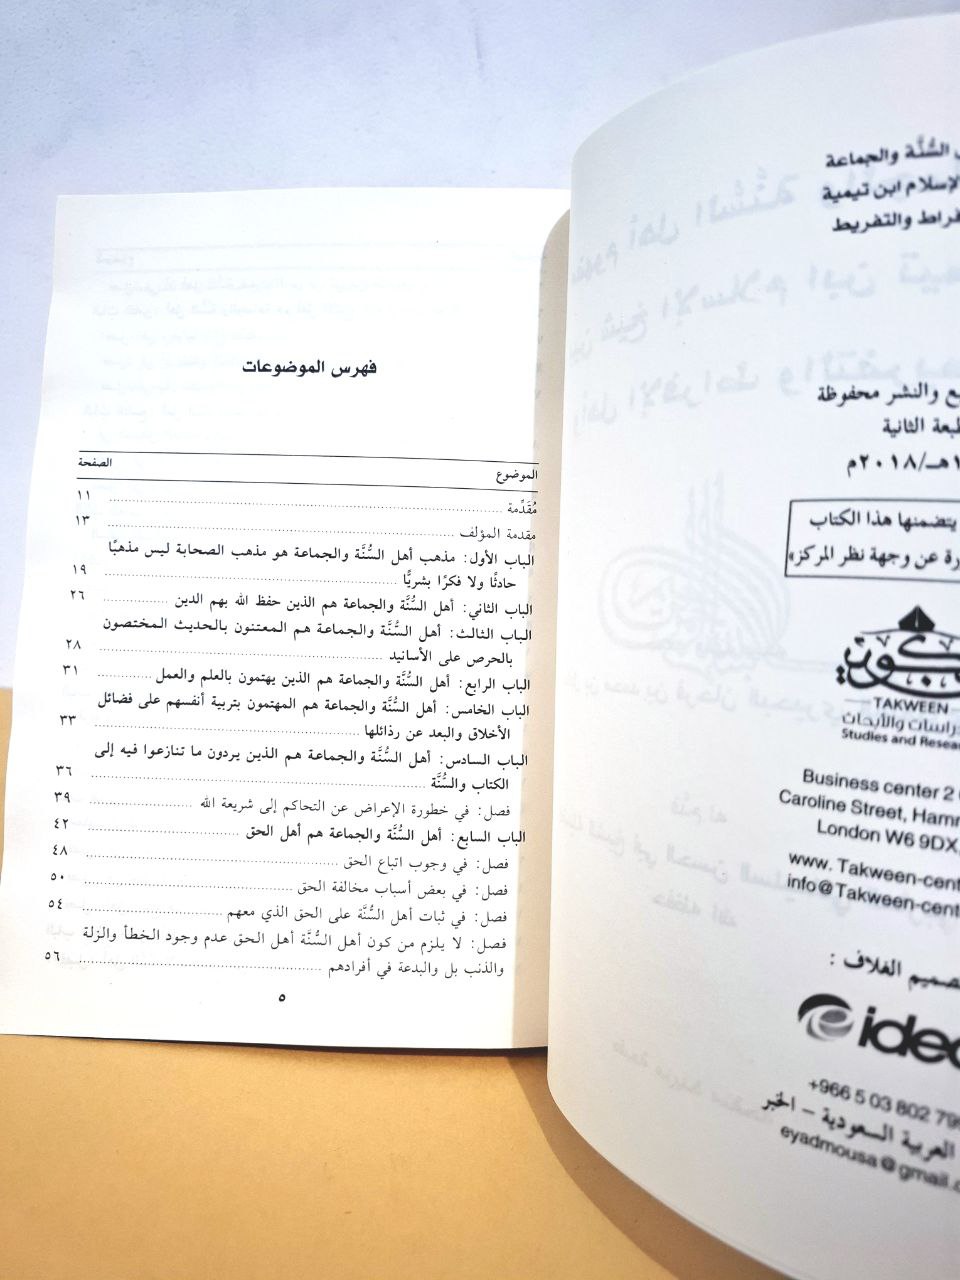 فهرس الموضوعات
الموضوع الصفحة
مُقَدِّمة ١١
مقدمة المؤلف ١٣
الباب الأول: مذهب أهل السُّنَّة والجماعة هو مذهب الصحابة ليس مذهبًا
حادثًا ولا فكرًا بشريًّا ١٩
الباب الثاني: أهل السُّنَّة والجماعة هم الذين حفظ الله بهم الدين ٢٦
الباب الثالث: أهل السُّنَّة والجماعة هم المعتنون بالحديث المختصون
بالحرص على الأسانيد ٢٨
الباب الرابع: أهل السُّنَّة والجماعة هم الذين يهتمون بالعلم والعمل ٣١
الباب الخامس: أهل السُّنَّة والجماعة هم المهتمون بتربية أنفسهم على فضائل
الأخلاق والبعد عن رذائلها ٣٣
الباب السادس: أهل السُّنَّة والجماعة هم الذين يردون ما تنازعوا فيه إلى
الكتاب والسُّنَّة ٣٦
فصل: في خطورة الإعراض عن التحاكم إلى شريعة الله ٣٩
الباب السابع: أهل السُّنَّة والجماعة هم أهل الحق ٤٢
فصل: في وجوب اتباع الحق ٤٨
فصل: في بعض أسباب مخالفة الحق ٥٠
فصل: في ثبات أهل السُّنَّة على الحق الذي معهم ٥٤
فصل: لا يلزم من كون أهل السُّنَّة أهل الحق عدم وجود الخطأ والزلة
والذنب بل والبدعة في أفرادهم ٥٦
٥
السُّنَّة والجماعة
الإسلام ابن تيمية
والتفريط
والنشر محفوظة
الثانية
٢٠١٨م
يتضمنها هذا الكتاب
عن وجهة نظر المركز»
تكوين
TAKWEEN
والأبحاث
Studies and
Business center 2
Caroline Street,
London W6 9DX,
www. Takween-
info@Takween-
الغلاف :
+966 5 03 802
العربية السعودية – الخبر
eyadmousa@gmail.